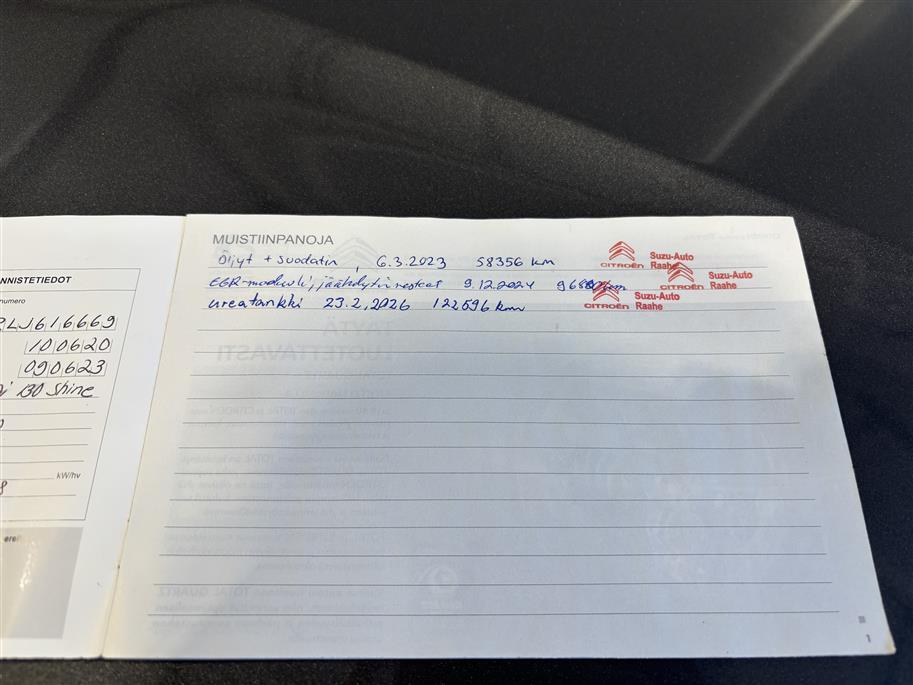 NNISTETIEDOT
numero
LJ616669
100620
090623
130 Shine
kW/hv
MUISTIINPANOJA
Öljyt + suodatin, 6.3.2023 58356 km
CITROËN Suzu-Auto Raahe
EGR-moduuli, jäähdytin nesteet 9.12.2024 km
CITROËN Suzu-Auto
ureatankki 23.2.2026 122696 km
CITROËN Suzu-Auto Raahe
1